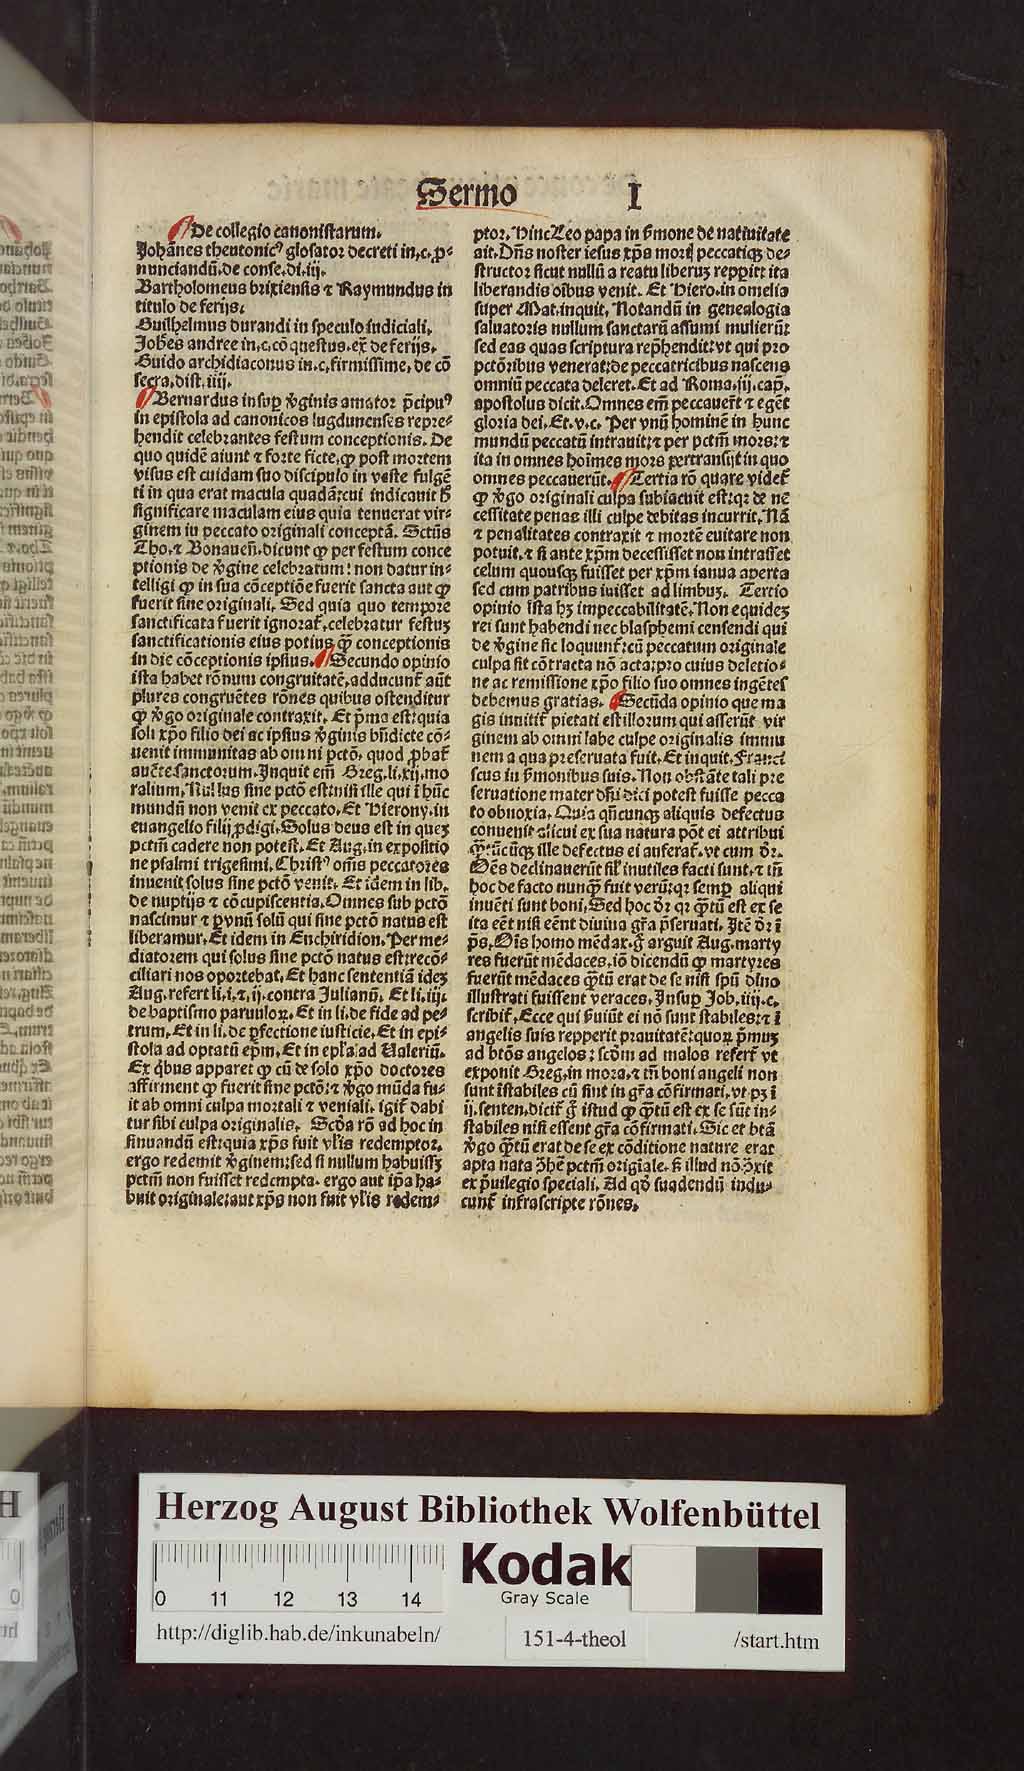 Sermo I
De collegio canonistarum.
Johānes theutonicꝰ glosator decreti in.c.ꝓ-
nunciandū.de conse.di.iij.
Bartholomeus brixiensis ⁊ Raymundus in
titulo de ferijs.
Guilhelmus durandi in speculo iudiciali.
Johēs andree in.c.cō questus.ex̄ de ferijs.
Guido archidiaconus in.c.firmissime, de cō
secra.dist.iiij.
Bernardus insuꝑ ꝟginis amator p̄cipuꝰ
in epistola ad canonicos lugdunenses repre-
hendit celebrantes festum conceptionis. De
quo quidē aiunt ⁊ forte ficte,ꝙ post mortem
visus est cuidam suo discipulo in veste fulgē
ti in qua erat macula quadā:cui indicauit h̄
significare maculam eius quia tenuerat vir-
ginem in peccato originali conceptā. Sctūs
Tho.⁊ Bonauen̄.dicunt ꝙ per festum conce
ptionis de ꝟgine celebratum: non datur in-
telligi ꝙ in sua cōceptiōe fuerit sancta aut ꝙ
fuerit sine originali. Sed quia quo tempore
sanctificata fuerit ignorat᷑,celebratur festuꝫ
sanctificationis eius potius ꝙ̄ conceptionis
in die cōceptionis ipsius. Secundo opinio
ista habet rōnum congruitatē,adducunt᷑ aūt
plures congruētes rōnes quibus ostenditur
ꝙ ꝟgo originale contraxit. Et p̄ma est:quia
soli xp̄o filio dei ac ipsius ꝟginis bn̄dicte cō-
uenit immunitas ab omni pctō, quod ꝓbat᷑
aucte.sanctorum. Inquit em̄ Greg.li.xij.mo
ralium, Nullus sine pctō est:nisi ille qui ī hūc
mundū non venit ex peccato. Et Hierony.in
euangelio filij ꝓdigi. Solus deus est in quez
pctm̄ cadere non potest. Et Aug.in expositio
ne psalmi trigesimi. Christꝰ om̄s peccatores
inuenit solus sine pctō venit. Et idem in lib.
de nuptijs ⁊ cōcupiscentia. Omnes sub pctō
nascimur ⁊ ꝑ vnū solū qui sine pctō natus est
liberamur. Et idem in Enchiridion. Per me-
diatorem qui solus sine pctō natus est:recō-
ciliari nos oportebat. Et hanc sententiā idez
Aug.refert li.i.⁊.ij.contra Julianū. Et li.iij.
de baptismo paruuloꝝ. Et in li.de fide ad pe-
trum. Et in li.de ꝑfectione iusticie. Et in epi-
stola ad optatū epm̄. Et in epl'a ad Ualeriū.
Ex q̇bus apparet ꝙ cū de solo xp̄o doctores
affirment ꝙ fuerit sine pctō:⁊ ꝟgo mūda fu-
it ab omni culpa mortali ⁊ veniali. igit᷑ dabi
tur sibi culpa originalis. Scḋa rō ad hoc in
sinuandū est:quia xp̄s fuit vl'is redemptor.
ergo redemit ꝟginem:sed si nullum habuissꝫ
pctm̄ non fuisset redempta. ergo aut ip̄a ha-
buit originale:aut xp̄s non fuit vl'is redem-
ptor. Hinc Leo papa in ẜmone de natiuitate
ait. Dn̄s noster iesus xp̄s mortꝭ peccatiqꝫ de-
structor sicut nullū a reatu liberuꝫ repperit: ita
liberandis oībus venit. Et Hiero.in omelia
super Mat.inquit. Notandū in genealogia
saluatoris nullum sanctarū assumi mulierū:
sed eas quas scriptura rep̄hendit:vt qui pro
pctōribus venerat:de peccatricibus nascens
omniū peccata deleret. Et ad Roma.iij.cap̄.
apostolus dicit. Omnes em̄ peccauer̄t ⁊ egēt
gloria dei. Et.v.c. Per vnū hominē in hunc
mundū peccatū intrauit:⁊ per pctm̄ mors:⁊
ita in omnes hoīmes mors pertransijt in quo
omnes peccauerūt. Tertia rō quare videt᷑
ꝙ ꝟgo originali culpa subiacuit est:qꝛ de ne
cessitate penas illi culpe debitas incurrit. Nā
⁊ penalitates contraxit ⁊ mortē euitare non
potuit.⁊ si ante xp̄m decessisset non intrasset
celum quousqꝫ fuisset per xp̄m ianua aperta
sed cum patribus iuisset ad limbuꝫ. Tercio
opinio ista hꝫ impeccabilitatē. Non equidez
rei sunt habendi nec blasphemi censendi qui
de ꝟgine sic loquunt᷑:cū peccatum originale
culpa sit cōtracta nō acta:pro cuius deletio-
ne ac remissione xp̄o filio suo omnes ingētes
debemus gratias. Secūda opinio que ma
gis innitit᷑ pietati est illorum qui asserūt vir
ginem ab omni labe culpe originalis immu
nem a qua preseruata fuit. Et inquit.Franci
scus in ẜmonibus suis. Non obstāte tali pre
seruatione mater dn̄i dici potest fuisse pecca
to obnoxia. Quia qn̄cunqꝫ aliquis defectus
conuenit alicui ex sua natura pōt ei attribui
ꝙ̄tūcūqꝫ ille defectus ei auferat᷑.vt cum dr̄.
Oēs declinauerūt sil' inutiles facti sunt.⁊ tn̄
hoc de facto nunꝙ̄ fuit verū:qꝛ semꝑ aliqui
inuēti sunt boni. Sed hoc dr̄ qꝛ ꝙ̄tū est ex se
ita eēt nisi eēnt diuina gr̄a p̄seruati. Itē dr̄ ī
p̄s. Oīs homo mēdax.ḡ arguit Aug.marty
res fuerūt mēdaces.iō dicendū ꝙ martyres
fuerūt mēdaces ꝙ̄tū erat de se nisi spū dīno
illustrati fuissent veraces. Insuꝑ Job.iiij.c.
scribit᷑. Ecce qui ẜuiūt ei nō sunt stabiles:⁊ ī
angelis suis repperit prauitatē:quoꝝ p̄muꝫ
ad btōs angelos: scḋm ad malos refert᷑ vt
exponit Greg.in mora.⁊ tn̄ boni angeli non
sunt īstabiles cū sint in gr̄a cōfirmati.vt pꝫ ī
ij.senten.dicit᷑ ḡ istud ꝙ ꝙ̄tū est ex se sūt in-
stabiles nisi essent gr̄a cōfirmati. Sic et btā
ꝟgo ꝙ̄tū erat de se ex cōditione nature erat
apta nata ꝯhē pctm̄ origiale.ẜ illud nō ꝯxit
ex p̄uilegio speciali. Ad qḋ suadendū indu-
cunt᷑ infrascripte rōnes.
Herzog August Bibliothek Wolfenbüttel
Kodak
Gray Scale
0 11 12 13 14
http://diglib.hab.de/inkunabeln/ 151-4-theol /start.htm